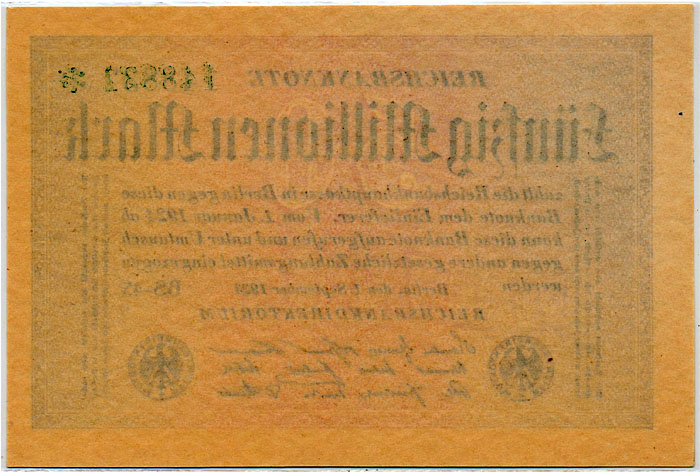 REICHSBANKNOTE
* 148831
Fünfzig Millionen Mark
zahlt die Reichsbankhauptkasse in Berlin gegen diese
Banknote dem Einlieferer. Vom 1. Januar 1924 ab
kann diese Banknote aufgerufen und unter Umtausch
gegen andere gesetzliche Zahlungsmittel eingezogen
werden
Berlin, den 1. September 1923
BS-45
REICHSBANKDIREKTORIUM